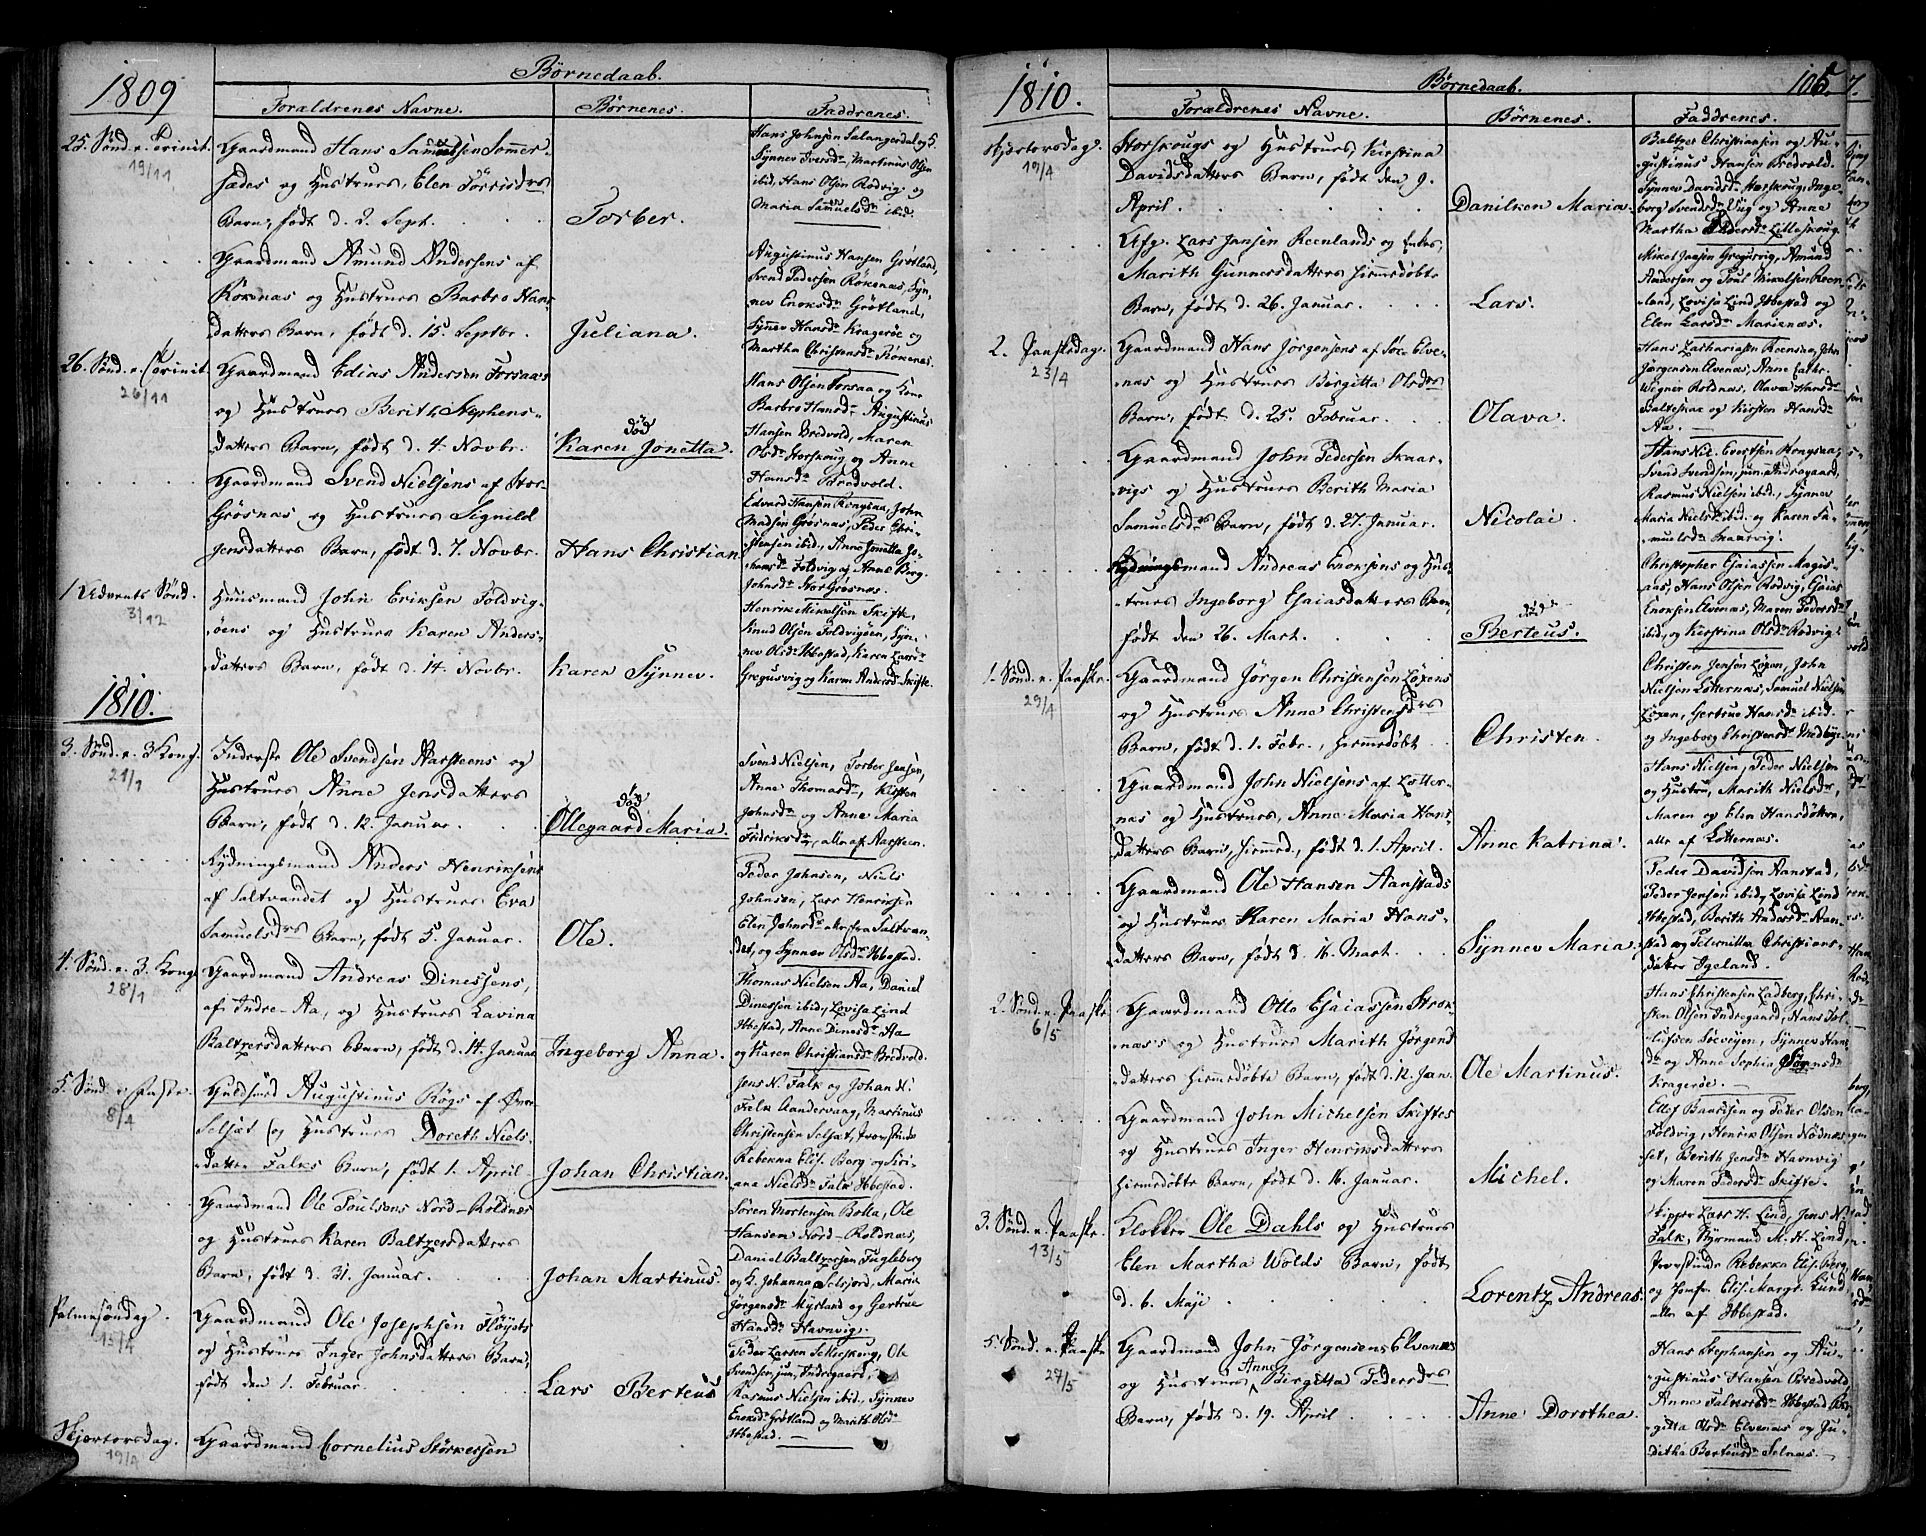 1809
Børnedaab.
Forældrenes Navne.
Børnenes.
Faddrenes.
25. Sønd. e. Trinit.
19/11
Gaardmand Hans Samuelsen Sommer-
sædes og Hustrues, Elen Törrisdrs
Barn, født d. 2. Sept.
Torber.
Hans Johnsen Salangsdal og S.
Synnev Iversdr, Martinus Olsen
ibid, Hans Olsen Rødvig og
Maria Samuelsdr ibid.
Gaardmand Amund Andersens af
Rökenæs og Hustrues Barbro Hans-
datters Barn, født d. 15. Septbr.
Juliana.
Augustinus Hansen Grötland,
Svend Pedersen Rökenæs, Syn-
nev Enoksdr Grötland,
Synnev Hansdr Krageröe og
Martha Christensdr Rökenæs.
26. Sønd. e. Trinit.
26/11
Gaardmand Edias Andersen Forsaaes
og Hustrues Berith Stephens-
datters Barn, født d. 4. Novbr.
død
Karen Jonetta.
Hans Olsen Forsaa og Kone
Barbro Hansdr Augustinus
Hansen Bredvold, Maren
Olsdr Storskoug og Anne
Hansdr Bredvold.
Gaardmand Svend Nielsens af Stor-
Grøsnæs og Hustrues Signild
Jensdatters Barn, født d. 7. Novbr.
Hans Christian
Edvard Hansen Rongsaa, John
Madsen Grøsnæs, Peder Chri-
stensen ibid., Anne Jonetta Jo-
hansdr Foldvig og Anne Berg.
Johnsdr Stor Grøsnæs.
1. Advents Sønd.
3/12
Huusmand John Eriksen Foldvig-
øens og Hustrues Karen Anders-
datters Barn, født d. 14. Novbr.
Karen Synnev.
Henrik Mikkelsen Skifte,
Knud Olsen Foldvigøen, Syn-
nev Olsdr Ibbestad, Karen Larsdr
Gregusvig og Karen Andersdr Skifte.
1810.
3. Sønd. e. 3 Kong.
21/1
Inderste Ole Svendsen Aarsteens og
Hustrues Anne Jensdatters
Barn, født d. 12. Januar.
død
Ollegaard Maria.
Svend Nielsen, Torber Jensen,
Anne Thomasdr, Kirsten
Johnsdr og Anne Maria
Fridriksdr, alle af Aarsteen.
Rydningsmand Anders Henriksens
af Saltvandet og Hustrues Eva
Samuelsdrs Barn, født 5. Januar.
Ole.
Peder Johnsen, Niels
Johnsen, Lars Henriksen
Elen Johnsdr alle fra Saltvan-
det, og Synnev Olsdr Ibbestad.
4. Sønd. e. 3. Kong.
28/1
Gaardmand Andreas Dinessens,
af Indre-Aa, og Hustrues Lavina
Baltzersdatters Barn, født d. 14. Januar
Ingeborg Anna.
Thomas Nielsen Aa, Daniel
Dinessen ibid, Lovisa Lind
Ibbestad, Anne Dinesdr Aa
og Karen Christiansdr Bredvold.
5. Sønd. e. Faste.
8/4
Huldsind Augustinus Røgs af Øvre
Selsæt og Hustrues Doreth Niels-
datter Falks Barn, født 1. April
Johan Christian.
Jens N. Falk og Johan N.
Falk Aandervaag, Martinus
Christensen Selsæt, Provstinde
Rebekka Elis. Berg og Siri-
ana Nielsdr Falk Ibbestad.
Gaardmand Ole Poulsens Nord-Roldnæs
og Hustrues Karen Baltzersdatters
Barn, født d. 31. Januar.
Johan Martinus.
Søren Mortensen Bolla, Ole
Hansen Nord-Roldnæs,
Daniel Baltzersen Fugleberg
og K. Johanna Selsjord, Maria
Jørgensdr Myrland og Gertrue
Hansdr Havnvig.
Palmesøndag.
15/4
Gaardmand Ole Josephsen Fløysts
og Hustrues Inger Johnsdatters Barn,
født den 1. Februar.
Lars Berteus
Peder Larsen Lilleskoug, Ole
Svendsen jun. Indregaard,
Rasmus Nielsen ibid., Synnev
Enoksdr Grötland og Marith Olsdr
Ibbestad.
Skjærtorsdag.
19/4
Gaardmand Cornelius Störkersen
1810.
Børnedaab.
106.
7.
Forældrenes Navne.
Børnenes.
Faddrenes.
Skjærtorsdag.
19/4
Storskougs og Hustrues, Kirstina
Davidsdatters Barn, født den 9.
April.
Danilken Maria.
Baltzer Christiansen og Au-
gustinus Hansen Bredvold.
Synnev Davidsdr Storskoug, Inge-
borg Svendsdr Vüg og Anne
Martha Pedersdr Lilleskoug.
Afg. Lars Jansen Reenlands og Enkes,
Marith Gunnersdatters hjemmedøbte
Barn, født d. 26. Januar.
Lars.
Mikel Jansen Gregusvig, Amund
Andersen og Poul Mikkelsen Reen-
land, Lovisa Lind Ibbestad og
Elen Larsdr Marienæs.
2. Paaskedag.
23/4
Gaardmand Hans Jørgensens af Søre Elve-
næs og Hustrues Birgitta Olsdrs
Barn, født d. 25. Februar.
Olava.
Hans Zachariasen Reensaa, John
Jørgensen Elvenæs, Anne Cathr.
Wigner Roldnæs, Olava Hansdr
Balteskar og Kirsten Hansdr
Aa.
Gaardmand John Pedersen Skaar-
vigs og Hustrues Berith Maria
Samuelsdrs Barn, født d. 27. Januar.
Nicolai.
Hans Nic. Evertsen Rongsaa,
Svend Svendsen, jun. Indregaard,
Rasmus Nielsen ibid., Synnev
Maria Nielsdr ibid. og Karen Sa-
muelsdr Skaarvig.
Rydningsmand Andreas Enoksens og Hus-
trues Ingeborg Esaiasdatters Barn
født den 26. Mart.
død
Berteus.
Christopher Esaiassen Magis-
aas, Hans Olsen Rødvig, Esaias
Enoksen Elvenæs, Maren Pedersdr
ibid, og Kirstina Olsdr Rødvig.
1. Sønd. e. Paaske.
29/4
Gaardmand Jørgen Christensen Løxens
og Hustrues Anne Christensdrs
Barn, født d. 1. Febr., hjemmedøbt
Christen.
Christen Jensen Løxen, John
Nielsen Lotternæs, Samuel Nielsen
Løxen, Gertrue Hansdr ibid.
og Ingeborg Christensdr Medbye.
Gaardmand John Nielsens af Lotter-
næs og Hustrues, Anne Maria Hans-
datters Barn, hjemmed., født d. 1. April.
Anne Katrina.
Hans Nielsen, Peder Nielsen
og Hustru, Marith Nielsdr,
Maren og Elen Hansdøttre,
alle af Lotternæs.
Gaardmand Ole Hansen Aanstads
og Hustrues Karen Maria Hans-
datters Barn, født d. 16. Mart.
Synnev Maria.
Peder Davidsen Aanstad,
Peder Jensen ibid, Lovisa Lind
Ibbestad, Berith Andersdr Aan-
stad og Peternilla Christians-
datter Igeland.
2. Sønd. e. Paaske
6/5
Gaardmand Otto Esaiassen Strok-
næs's og Hustrues Marith Jørgens
datters hjemmedøbte Barn, født d. 12. Jan.
Ole Martinus.
Hans Christensen Ladberg, Chri-
sten Olsen Indregaard, Hans Tol-
lufsen Sørvejen, Synnev Hans
dr og Anne Sophia Jörgensdr
Krageröe.
Gaardmand John Michelsen Skiftes
og Hustrues Inger Henriksdatters
hjemmedøbte Barn, født d. 16. Januar.
Michel.
Ellef Baardsen og Peder Olsen
Foldvig, Henrik Olsen Nødnæs-
set, Berith Jensdr Havnvig
og Maren Pedersdr Skifte.
3. Sønd. e. Paaske.
13/5
Klokker Ole Dahls og Hustrues
Elen Martha Wolds Barn, født
d. 6. Maji
Lorentz Andreas.
Skipper Lars H. Lind, Jens N.
Falk, Styrmand M. H. Lind,
Provstinde Rebekka Elis. Berg,
og Jomfr. Elis. Margr. Lund,
alle af Ibbestad.
5. Sønd. e. Paaske
27/5
Gaardmand John Jörgensens Elvenæs
og Hustrues Anne Birgitta Pedersdrs
Barn, født d. 19. April
Anne Dorothea.
Hans Stephansen og Au-
gustinus Hansen Bredvold
Anne Falkersdr Ibbestad Bir-
gitta Olsdr Elvenæs og Ju-
ditha Berteusdr Selnæs.